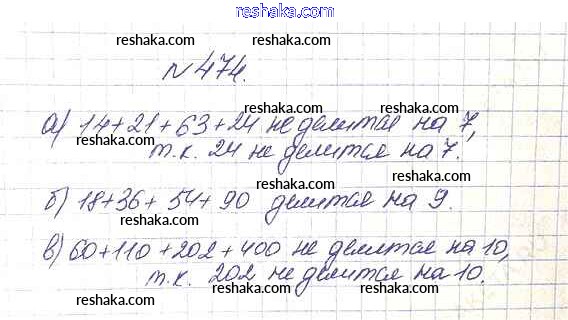 reshaka.com
№474.
а) 14+21+63+24 не делится на 7,
т.к. 24 не делится на 7.
б) 18+36+54+90 делится на 9.
в) 60+110+202+400 не делится на 10,
т.к. 202 не делится на 10.
reshaka.com
reshaka.com
reshaka.com
reshaka.com
reshaka.com
reshaka.com
reshaka.com
reshaka.com
reshaka.com
reshaka.com
reshaka.com
reshaka.com
reshaka.com
reshaka.com